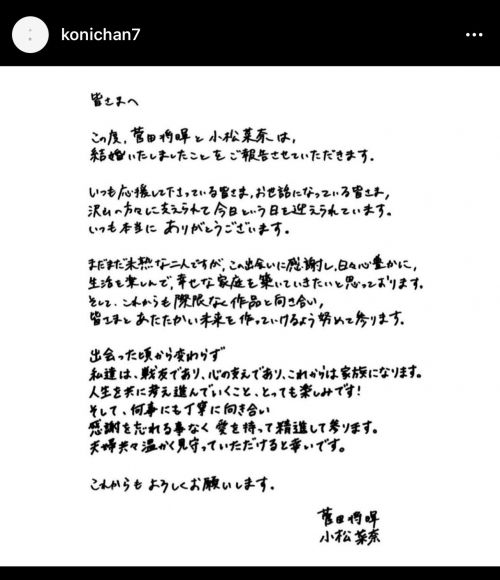 konichan7
皆さまへ
この度、菅田将暉と小松菜奈は、
結婚いたしましたことをご報告させていただきます。
いつも応援して下さっている皆さま、お世話になっている皆さま、
沢山の方々に支えられて今日という日を迎えられています。
いつも本当に ありがとうございます。
まだまだ未熟な二人ですが、この出会いに感謝し、日々心豊かに、
生活を楽しんで、幸せな家庭を築いていきたいと思っております。
そして、これからも際限なく作品と向き合い、
皆さまとあたたかい未来を作っていけるよう努めて参ります。
出会った頃から変わらず
私達は、戦友であり、心の支えであり、これからは家族になります。
人生を共に考え進んでいくこと、とっても楽しみです!
そして、何事にも丁寧に向き合い
感謝を忘れる事なく 愛を持って精進して参ります。
夫婦共々温かく見守っていただけると幸いです。
これからも よろしくお願いします。
菅田将暉
小松菜奈